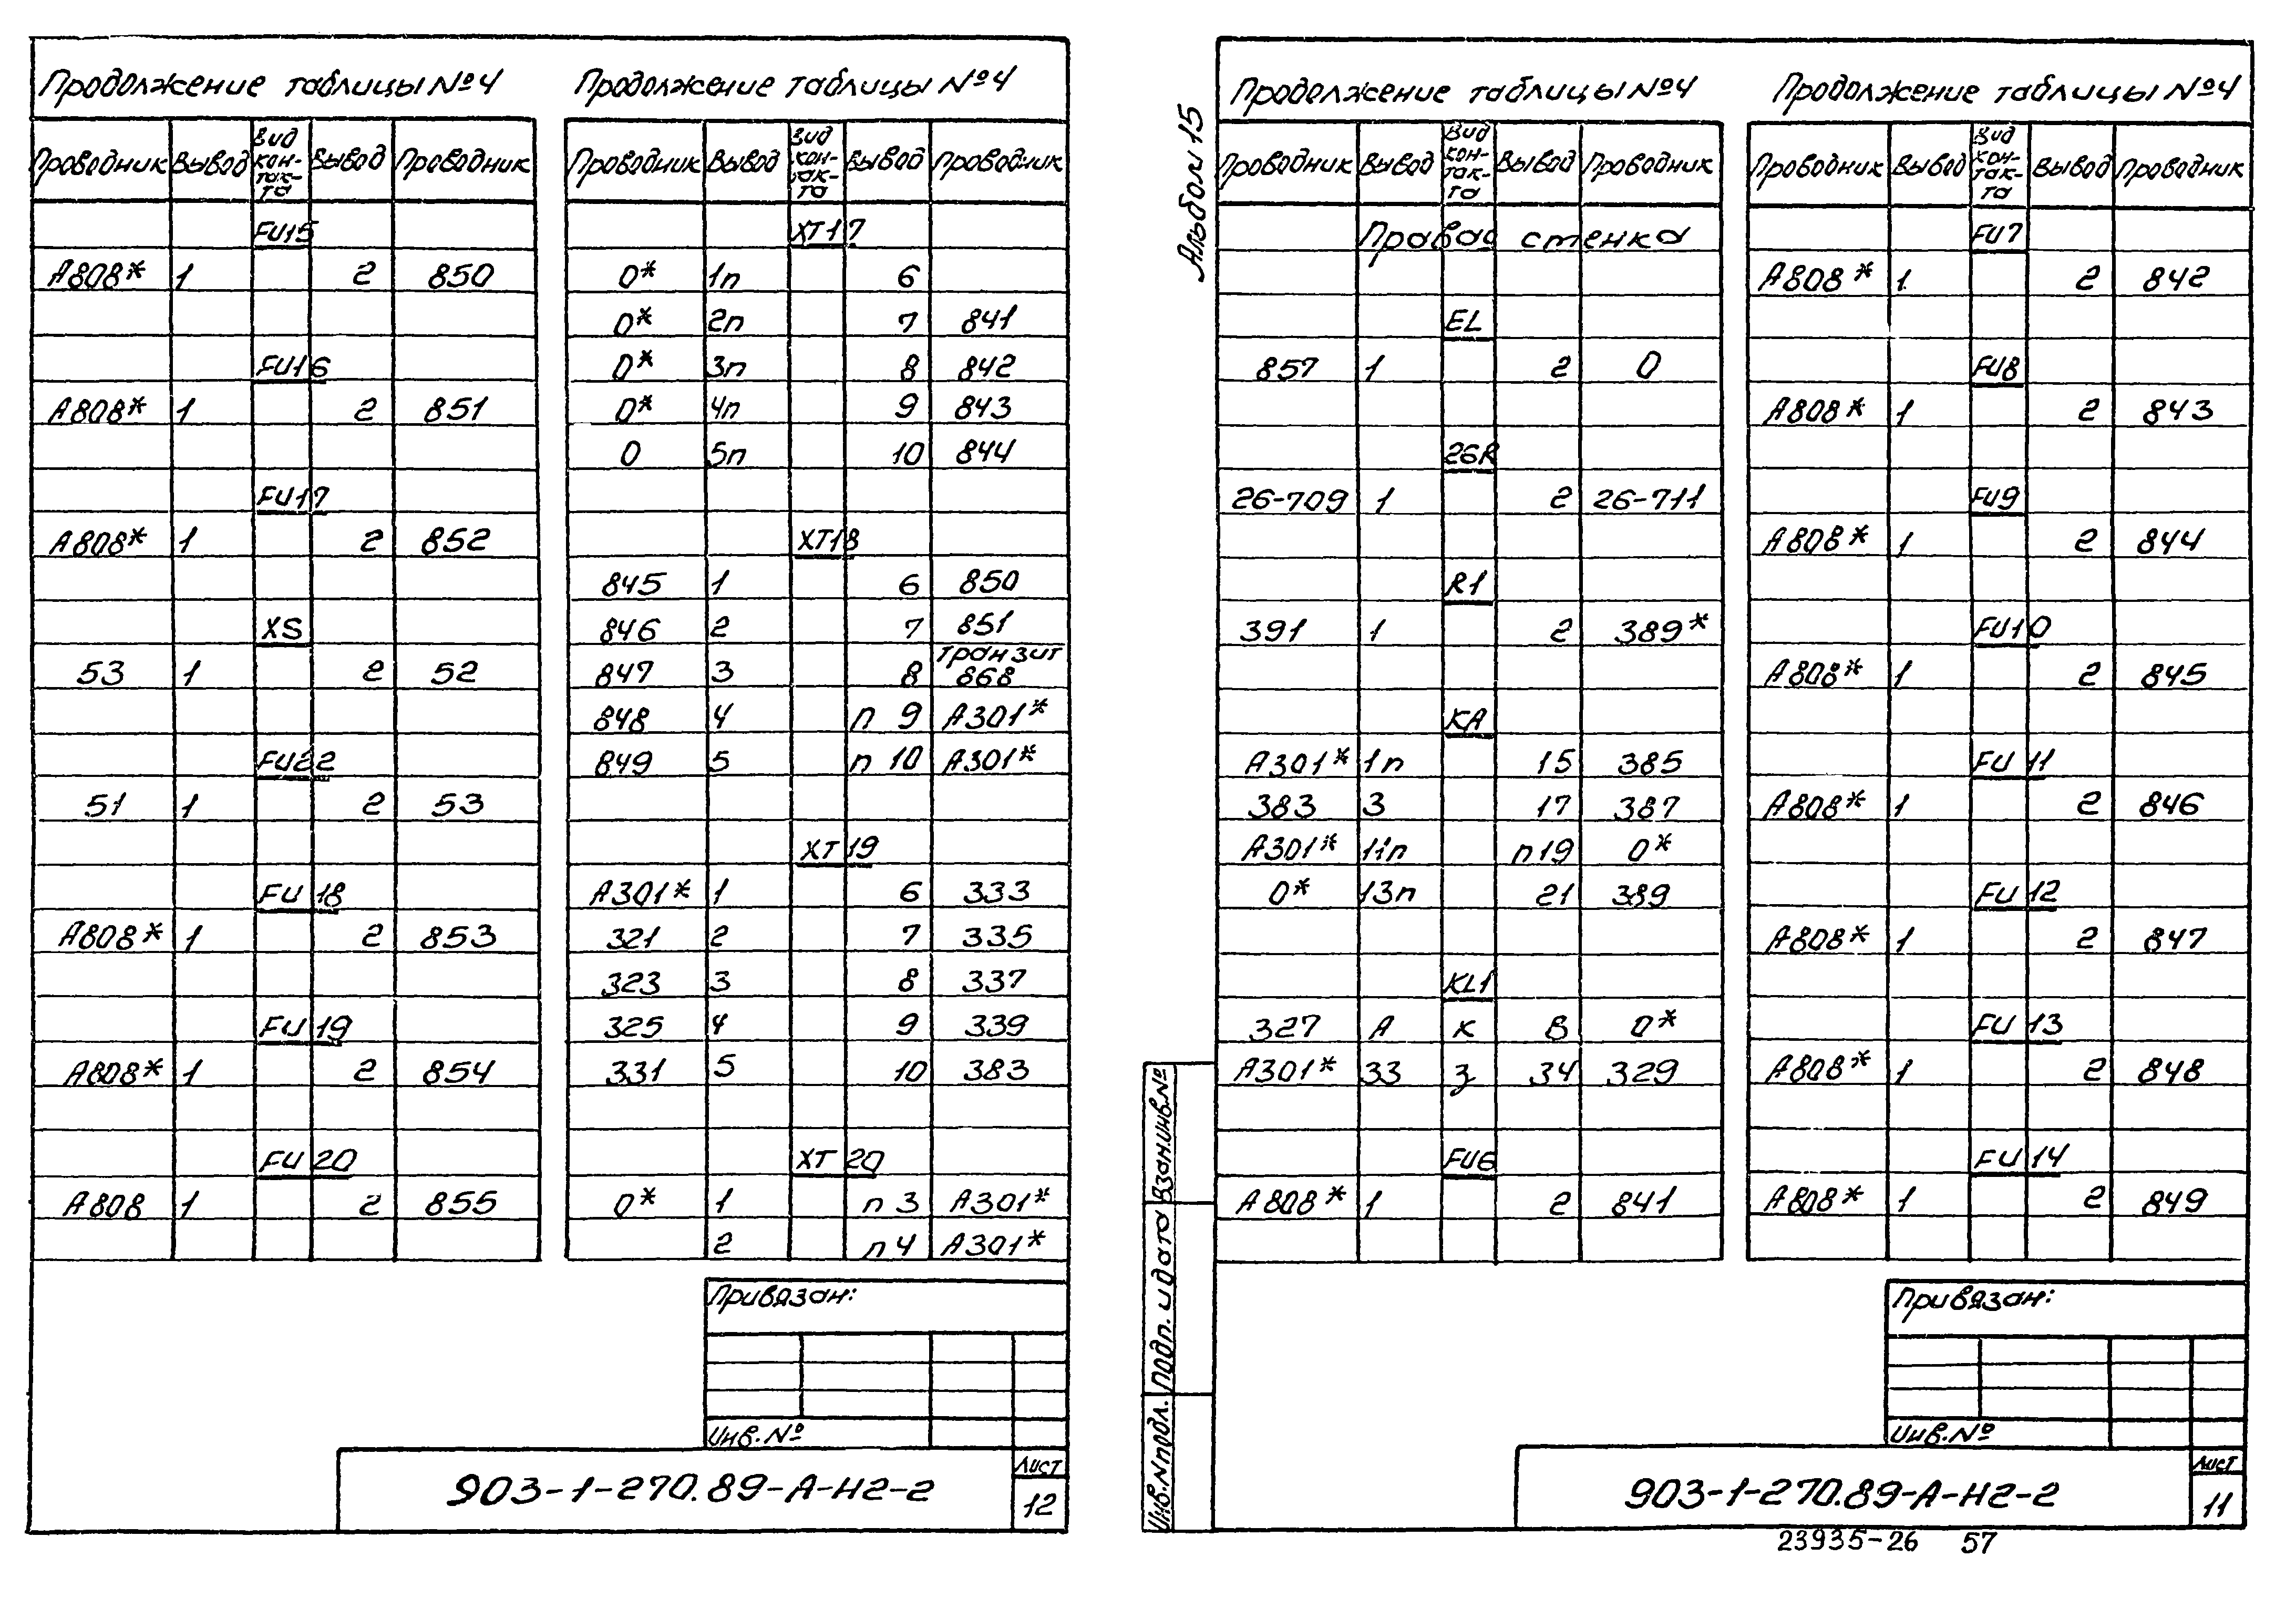 Продолжение таблицы №4
Проводник Вывод Вид кон-так-та Вывод Проводник
FU15
А808* 1 2 850
FU16
А808* 1 2 851
FU17
А808* 1 2 852
XS
53 1 2 52
FU22
51 1 2 53
FU18
А808* 1 2 853
FU19
А808* 1 2 854
FU20
А808 1 2 855
Продолжение таблицы №4
Проводник Вывод Вид кон-так-та Вывод Проводник
XT17
0* 1п 6
0* 2п 7 841
0* 3п 8 842
0* 4п 9 843
0 5п 10 844
XT18
845 1 6 850
846 2 7 851
транзит
847 3 8 868
848 4 п 9 А301*
849 5 п 10 А301*
XT19
А301* 1 6 333
321 2 7 335
323 3 8 337
325 4 9 339
331 5 10 383
XT20
0* 1 п 3 А301*
2 п 4 А301*
Привязан:
Инв.№
903-1-270.89-А-Н2-2
Лист
12
Альбом 15
Продолжение таблицы №4
Проводник Вывод Вид кон-так-та Вывод Проводник
Правая стенка
EL
857 1 2 0
26R
26-709 1 2 26-711
R1
391 1 2 389*
KA
А301* 1п 15 385
383 3 17 387
А301* 11п п19 0*
0* 13п 21 389
KL1
327 А К В 0*
А301* 33 З 34 329
FU6
А808* 1 2 841
Продолжение таблицы №4
Проводник Вывод Вид кон-так-та Вывод Проводник
FU7
А808* 1 2 842
FU8
А808* 1 2 843
FU9
А808* 1 2 844
FU10
А808* 1 2 845
FU11
А808* 1 2 846
FU12
А808* 1 2 847
FU13
А808* 1 2 848
FU14
А808* 1 2 849
Взам.инв.№
Подп. и дата
Инв.№подл.
Привязан:
Инв.№
903-1-270.89-А-Н2-2
Лист
11
23935-26 57